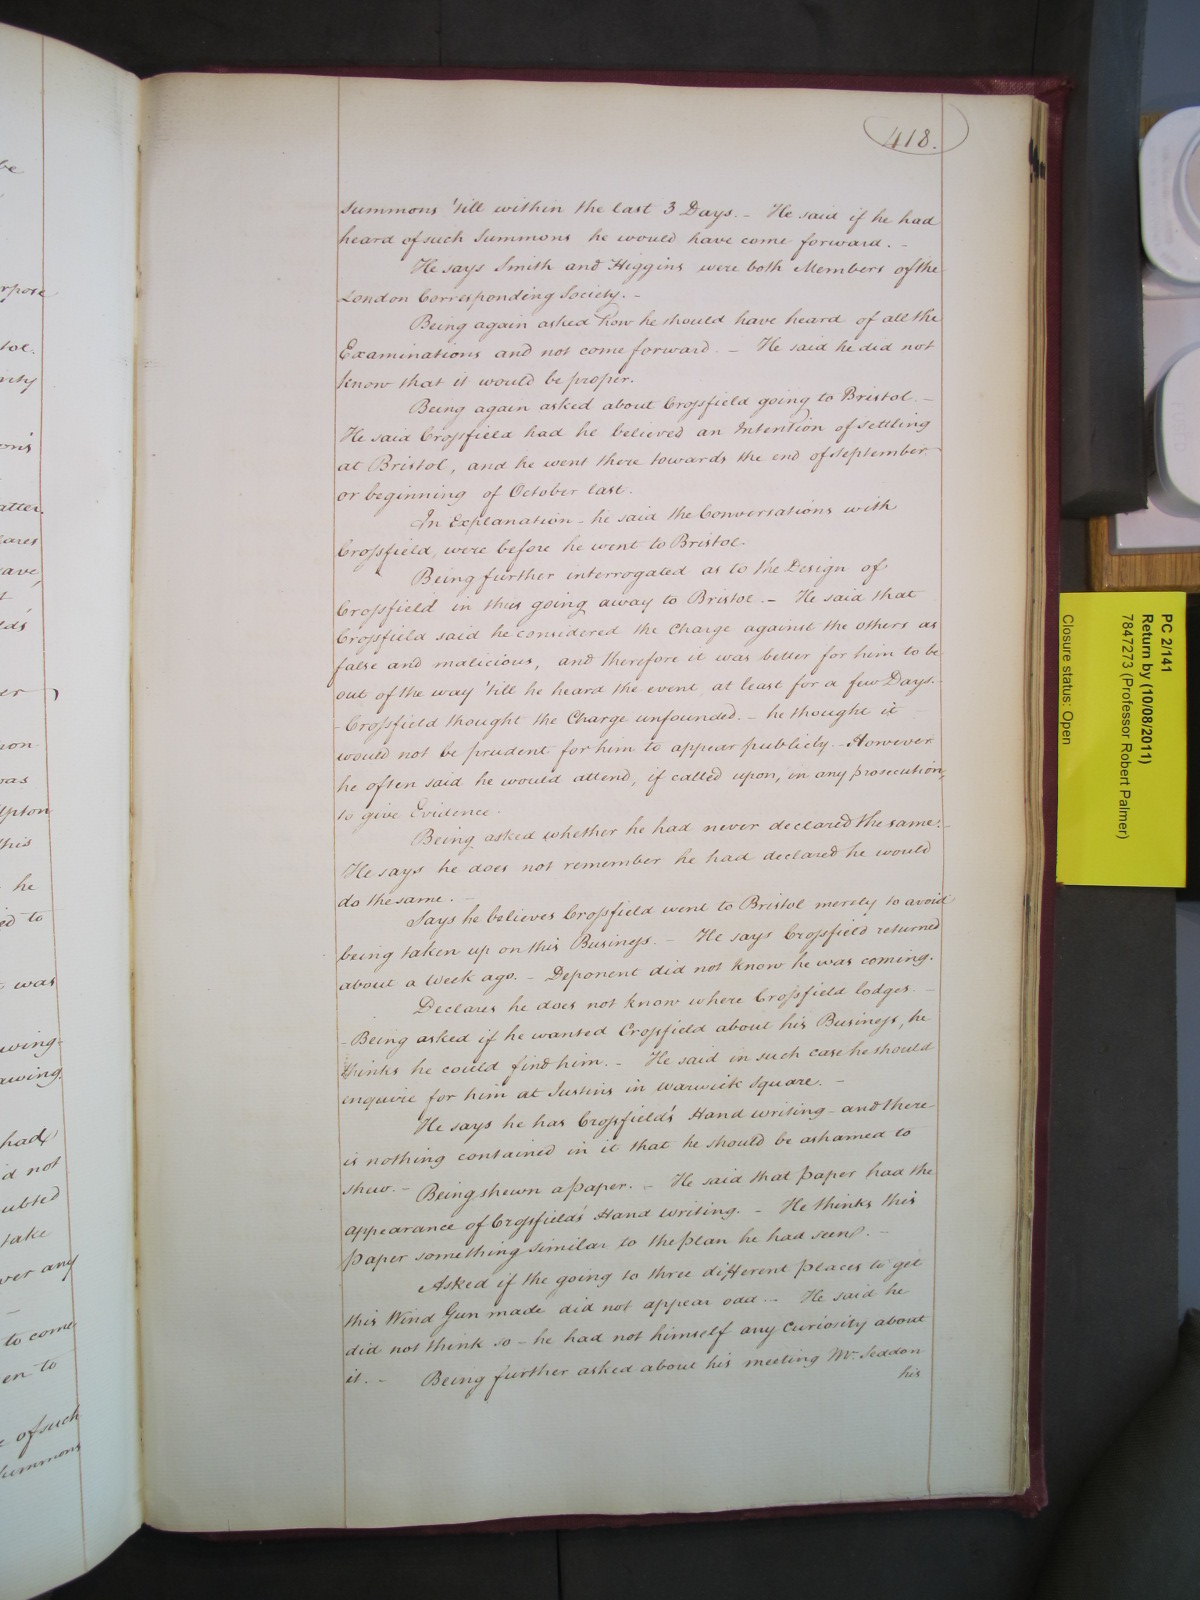 418.
Summons 'till within the last 3 Days. - He said if he had
heard of such Summons he would have come forward. -
He says Smith and Higgins were both Members of the
London Corresponding Society. -
Being again asked how he should have heard of all the
Examinations and not come forward. - He said he did not
know that it would be proper.
Being again asked about Crossfield going to Bristol. -
He said Crossfield had he believed an Intention of settling
at Bristol, and he went there towards the end of September
or beginning of October last.
In Explanation - he said the Conversations with
Crossfield, were before he went to Bristol.
Being further interrogated as to the Design of
Crossfield in this going away to Bristol. - He said that
Crossfield said he considered the Charge against the others as
false and malicious, and therefore it was better for him to be
out of the way 'till he heard the event, at least for a few Days. -
- Crossfield thought the Charge unfounded. - he thought it -
would not be prudent for him to appear publicly. - However
he often said he would attend, if called upon, in any prosecution,
to give Evidence.
Being asked whether he had never declared the same. -
He says he does not remember he had declared he would
do the same. -
Says he believes Crossfield went to Bristol merely to avoid
being taken up on this Business. - He says Crossfield returned
about a Week ago. - Deponent did not know he was coming.
Declares he does not know where Crossfield lodges. -
- Being asked if he wanted Crossfield about his Business, he
thinks he could find him. - He said in such case he should
inquire for him at Justins in Warwick Square. -
He says he has Crossfield's Hand writing - and there
is nothing contained in it that he should be ashamed to
shew. - Being shewn a Paper. - He said that Paper had the
appearance of Crossfield's Hand writing. - He thinks this
Paper something similar to the plan he had seen. -
Asked if the going to three different places to get
this Wind Gun made did not appear odd. - He said he
did not think so - he had not himself any Curiosity about
it. - Being further asked about his meeting Mr. Seddon
his
PC 2/141
Return by (10/08/2011)
7847273 (Professor Robert Palmer)
Closure status: Open